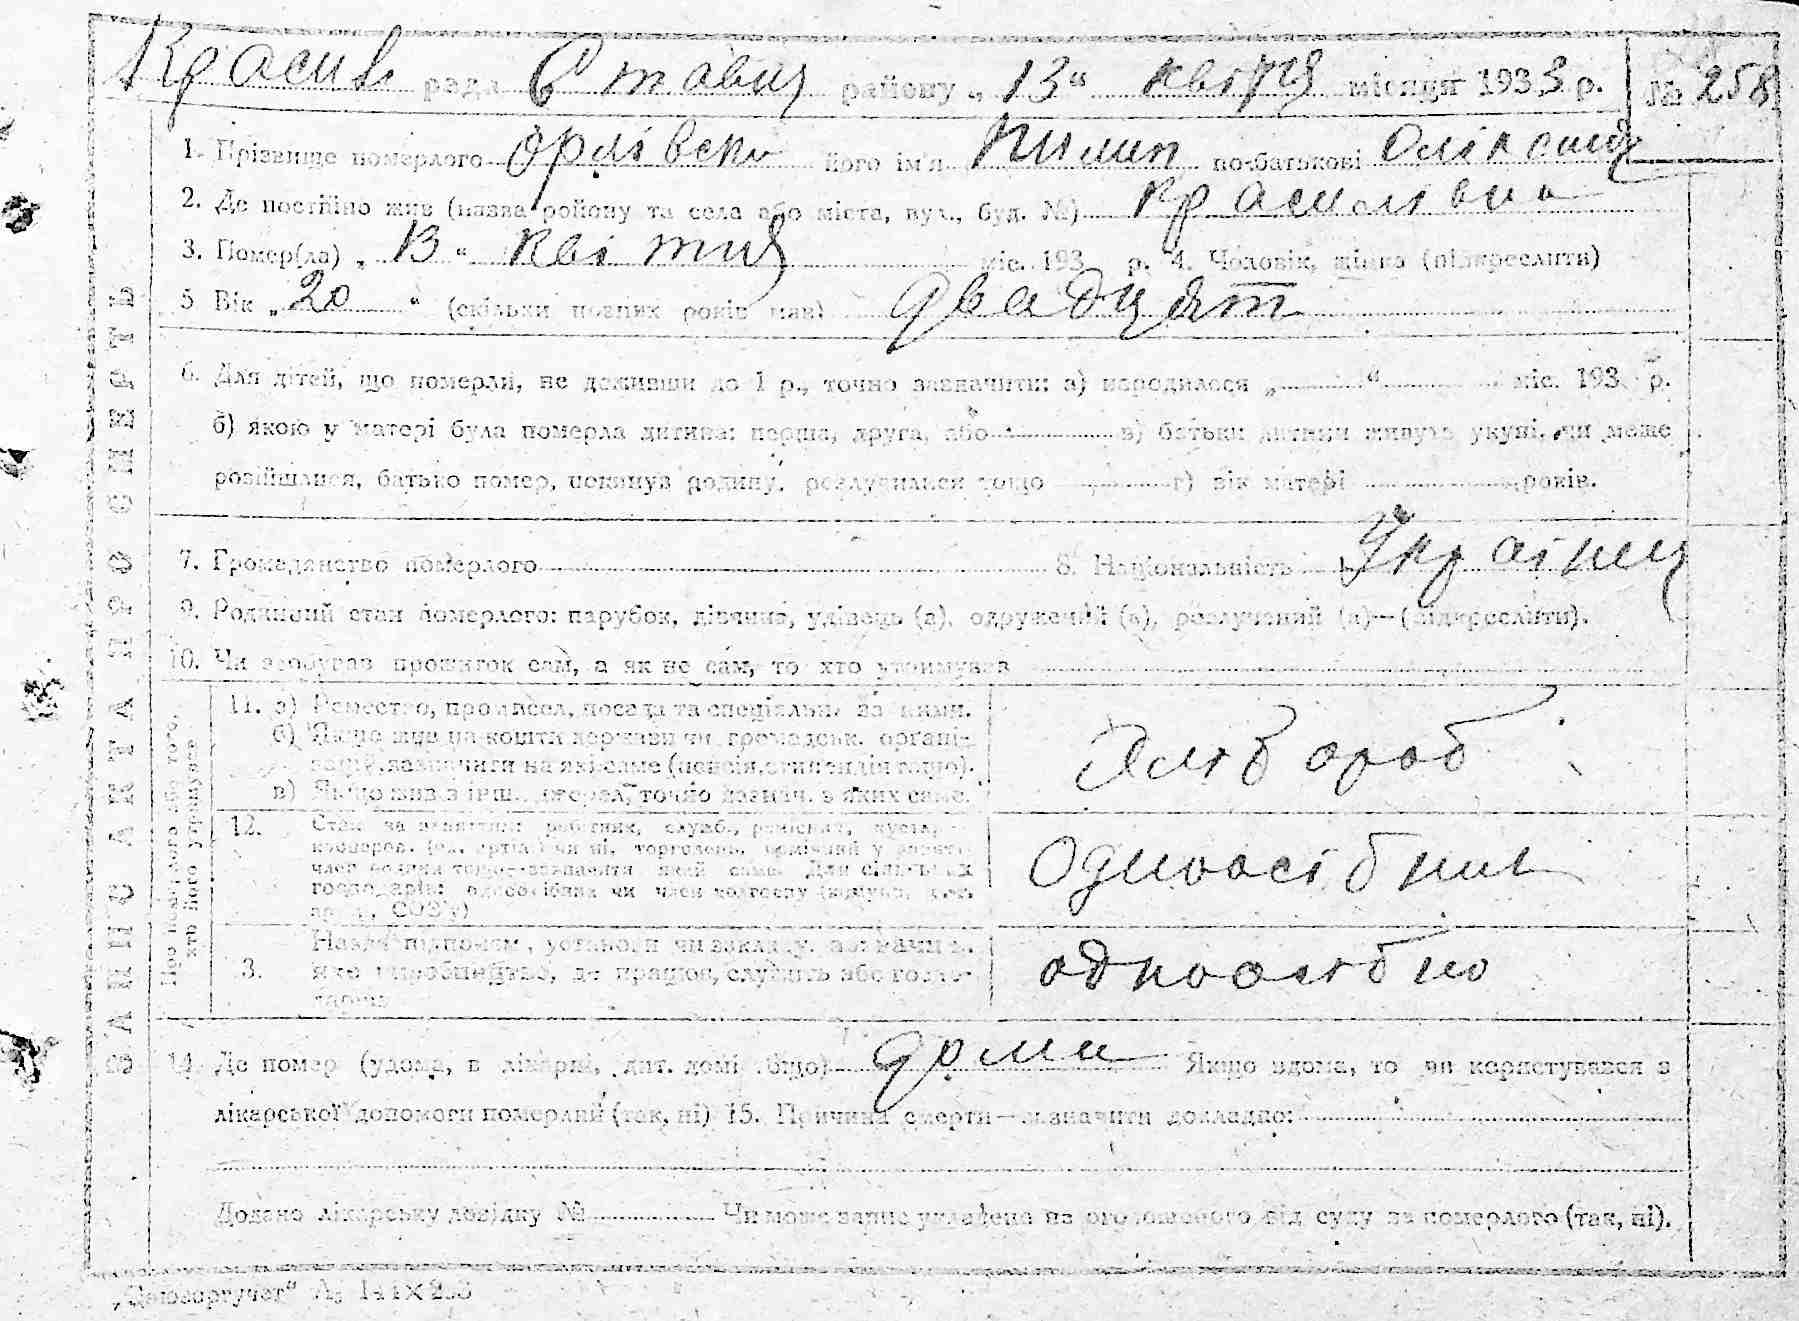 Красив рада Ставищ району „13" квітця місяця 1933 р. № 258
1. Прізвище померлого Орлівськи його ім'я Пилип по-батькові Оліксі
2. Де постійно жив (назва району та села або міста, вул., буд. №) Красилівка
3. Помер(ла) „13" квітця міс. 193 р. 4. Чоловік, жінка (підкреслити)
5 Вік „20" (скільки повних років мав) двадцять
6. Для дітей, що померли, не доживши до 1 р., точно зазначити: а) народилося „ " міс. 193 р.
б) якою у матері була померла дитина: перша, друга, або в) батьки дитини живуть укупі, чи може
розійшлися, батько помер, покинув родину, розлучилися тощо г) вік матері років.
7. Громадянство померлого 8. Національність Українец
9. Родинний стан померлого: парубок, дівчина, удівець (а), одружений (а), розлучений (а)—(підкреслити).
10. Чи здобував прожиток сам, а як не сам, то хто утримував
ЗАПИС АКТА ПРО СМЕРТЬ
Про померлого або того,
хто його утримував
11. а) Ремество, промисел, посада та спеціальн. за ними.
б) Якщо жив на кошти держави чи громадськ. органі-
зацій, зазначити на які саме (пенсія, стипендія тощо).
в) Якщо жив з інш. джерел, точно зазнач. з яких саме.
Хлібороб
12.
господарів: одноосібник чи член колгоспу
СОЗ'у)
Одноосібник
3. Назва підприєм., установи чи закладу,
яке виробництво, де працює, служить або госпо-
одноосібно
14. Де помер (удома, в лікарні, дит. домі тощо) дома Якщо вдома, то чи користувався з
лікарської допомоги померлий (так, ні) 15. Причина смерти—зазначити докладно:
Додано лікарську довідку № Чи може запис укладено на оголошеного від суду за померлого (так, ні).
„Союзоргучет"